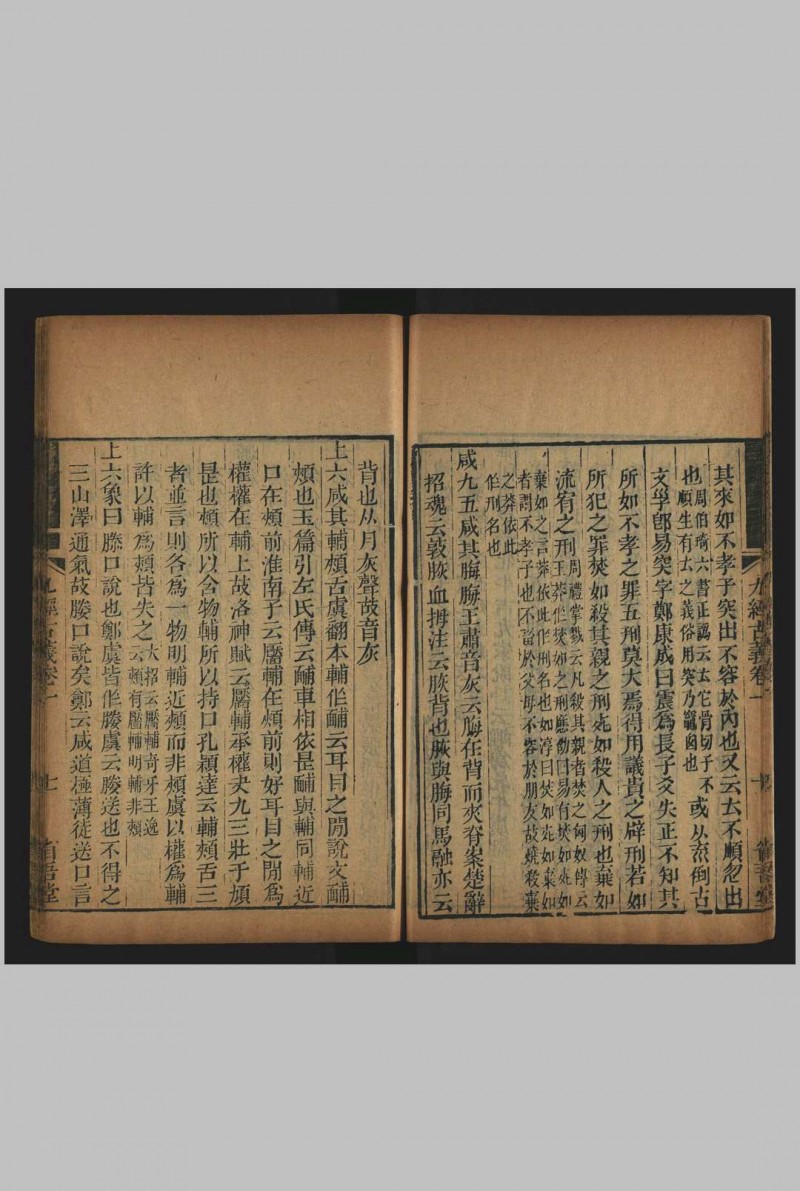 九經古義卷一
其來如不孝子突出不容於內也又云𠫓不順忽出
也周伯琦六書正譌云𠫓它骨切子不
順生有𠫓之義俗用突乃竈囪也
或从㐬倒古
文 即易突字鄭康成曰震為長子爻失正不知其
所如不孝之罪五刑莫大焉得用議貴之辟刑若如
所犯之罪焚如殺其親之刑死如殺人之刑也棄如
流宥之刑周禮掌戮云凡殺其親者焚之匈奴傳云
王莽作焚如之刑應劭曰易有焚如死如
棄如之言莽依此作刑名也如淳曰焚如死如棄如
者謂不孝子也不畜於父母不容於朋友故燒殺棄
之莽依此
作刑名也
咸九五咸其脢脢王肅音灰云脢在背而夾脊案楚辭
招魂云敦脄血拇注云脄背也脄與脢同馬融亦云
七
省吾堂
背也从月灰聲故音灰
上六咸其輔頰舌虞翻本輔作䩉云耳目之閒說文䩉
頰也玉篇引左氏傳云䩉車相依是䩉與輔同輔近
口在頰前淮南子云靨輔在頰前則好耳目之閒爲
權權在輔上故洛神賦云靨輔承權夬九三壯于頄
是也頰所以含物輔所以持口孔穎達云輔頰舌三
者並言則各爲一物明輔近頰而非頰虞以權爲輔
許以輔爲頰皆失之大招云靨輔奇牙王逸
云頰有靨輔明輔非頰
上六象曰滕口說也鄭虞皆作媵虞云媵送也不得之
三山澤通氣故媵口說矣鄭云咸道極薄徒送口言
九經古義卷一
七
省吾堂